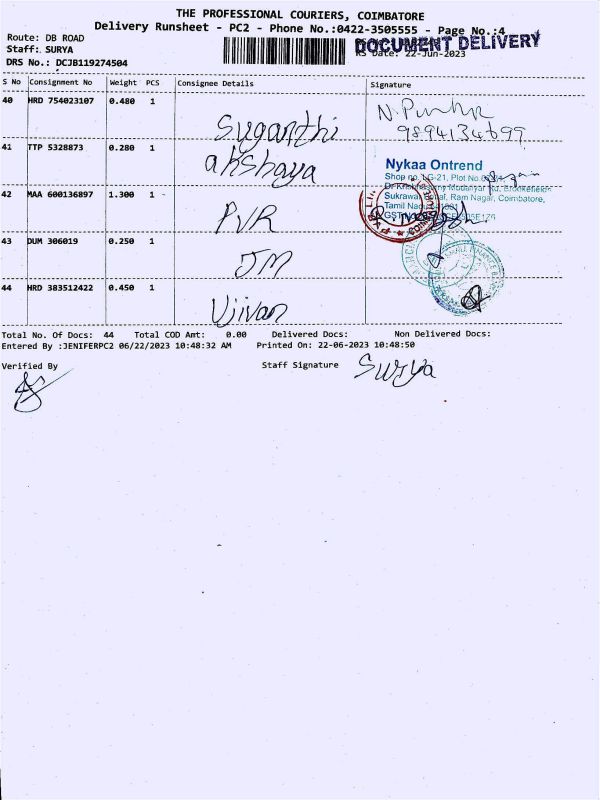 THE PROFESSIONAL COURIERS, COIMBATORE
Delivery Runsheet - PC2 - Phone No.:0422-3505555 - Page No.:4
Route: DB ROAD
DOCUMENT DELIVERY
Staff: SURYA
RS Date: 22-Jun-2023
DRS No.: DCJB119274504
S No Consignment No Weight PCS Consignee Details Signature
40 HRD 754023107 0.480 1 Suganthi
9894134699
41 TTP 5328873 0.280 1 akshaya
Nykaa Ontrend
Shop no. LG-21, Plot No.
Ram Nagar, Coimbatore,
Tamil
42 MAA 600136897 1.300 1 PVR
43 DUM 306019 0.250 1 JM
44 HRD 383512422 0.450 1 Ujivan
Total No. Of Docs: 44 Total COD Amt: 0.00 Delivered Docs: Non Delivered Docs:
Entered By :JENIFERPC2 06/22/2023 10:48:32 AM Printed On: 22-06-2023 10:48:50
Verified By Staff Signature Surya